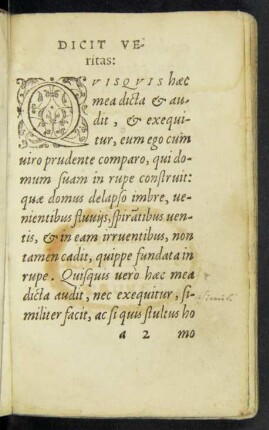 DICIT VE-
ritas:
QVISQVIS hæc
mea dicta & au-
dit, & exequi-
tur, eum ego cum
uiro prudente comparo, qui do-
mum suam in rupe construit:
quæ domus delapso imbre, ue-
nientibus fluuijs, spirãtibus uen-
tis, & in eam irruentibus, non
tamen cadit, quippe fundata in
rupe. Quisquis uerò hæc mea
dicta audit, nec exequitur, si-
militer facit, ac si quis stultus ho
a 2 mo